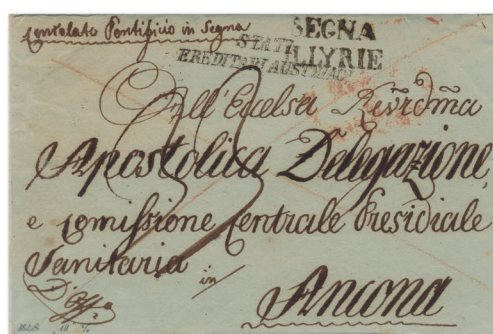 Consolato Pontificio in Segna
SEGNA
ILLYRIE
STATI
EREDITARI AUSTRIACI
All'Eccelsa Revdma
Apostolica Delegazione
e Comissione Centrale Presidiale
Sanitaria
in
Ancona